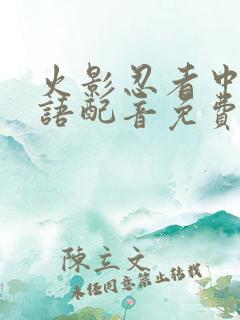 火影忍者中
語配音免費
陳立文
未任同意禁止转载